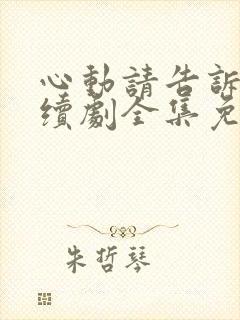 心動請告訴
續劇全集免
朱哲琴